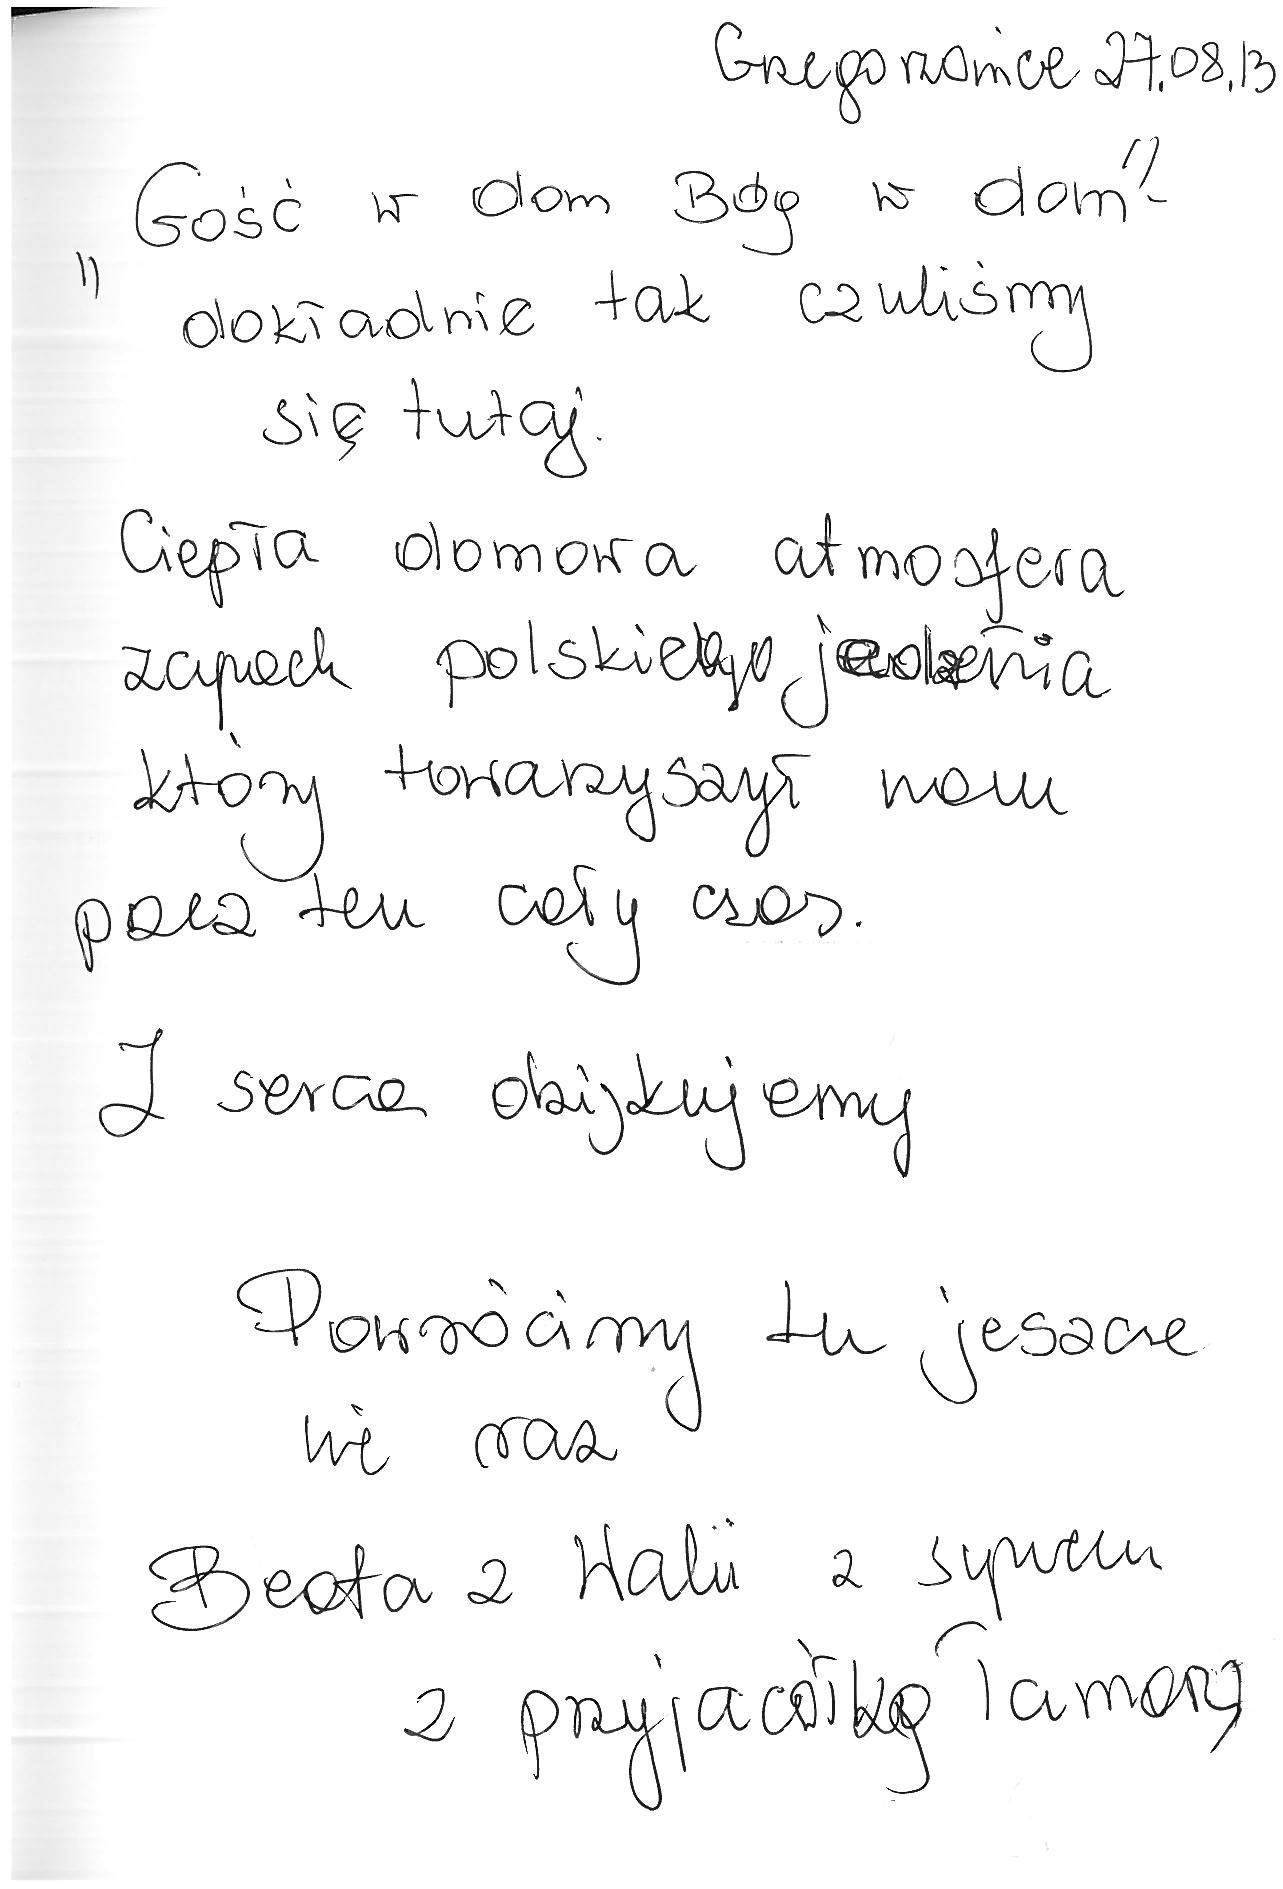 Grzegorzowice 27.08.13
"Gość w dom Bóg w dom" -
dokładnie tak czuliśmy
się tutaj.
Ciepła domowa atmosfera
zapach polskiego jedzenia
który towarzyszył nam
przez ten cały czas.
Z serca dziękujemy
Powrócimy tu jeszcze
nie raz
Beata z Walii z synem
z przyjaciółką Tamarą